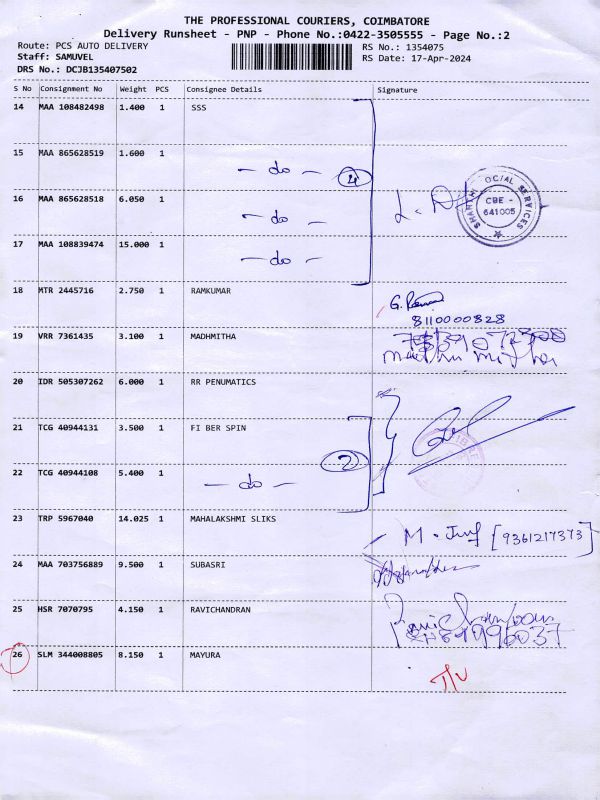 THE PROFESSIONAL COURIERS, COIMBATORE
Delivery Runsheet - PNP - Phone No.:0422-3505555 - Page No.:2
Route: PCS AUTO DELIVERY
RS No.: 1354075
Staff: SAMUVEL
RS Date: 17-Apr-2024
DRS No.: DCJB135407502
S No Consignment No Weight PCS Consignee Details Signature
14 MAA 108482498 1.400 1 SSS
15 MAA 865628519 1.600 1
- do - 4
16 MAA 865628518 6.050 1
- do -
SHANTHI SOCIAL SERVICES
CBE -
641005
17 MAA 108839474 15.000 1
- do -
18 MTR 2445716 2.750 1 RAMKUMAR
8110000828
19 VRR 7361435 3.100 1 MADHMITHA
20 IDR 505307262 6.000 1 RR PENUMATICS
21 TCG 40944131 3.500 1 FI BER SPIN
2
22 TCG 40944108 5.400 1
- do -
23 TRP 5967040 14.025 1 MAHALAKSHMI SLIKS
[9361217373]
24 MAA 703756889 9.500 1 SUBASRI
25 HSR 7070795 4.150 1 RAVICHANDRAN
26 SLM 344008805 8.150 1 MAYURA